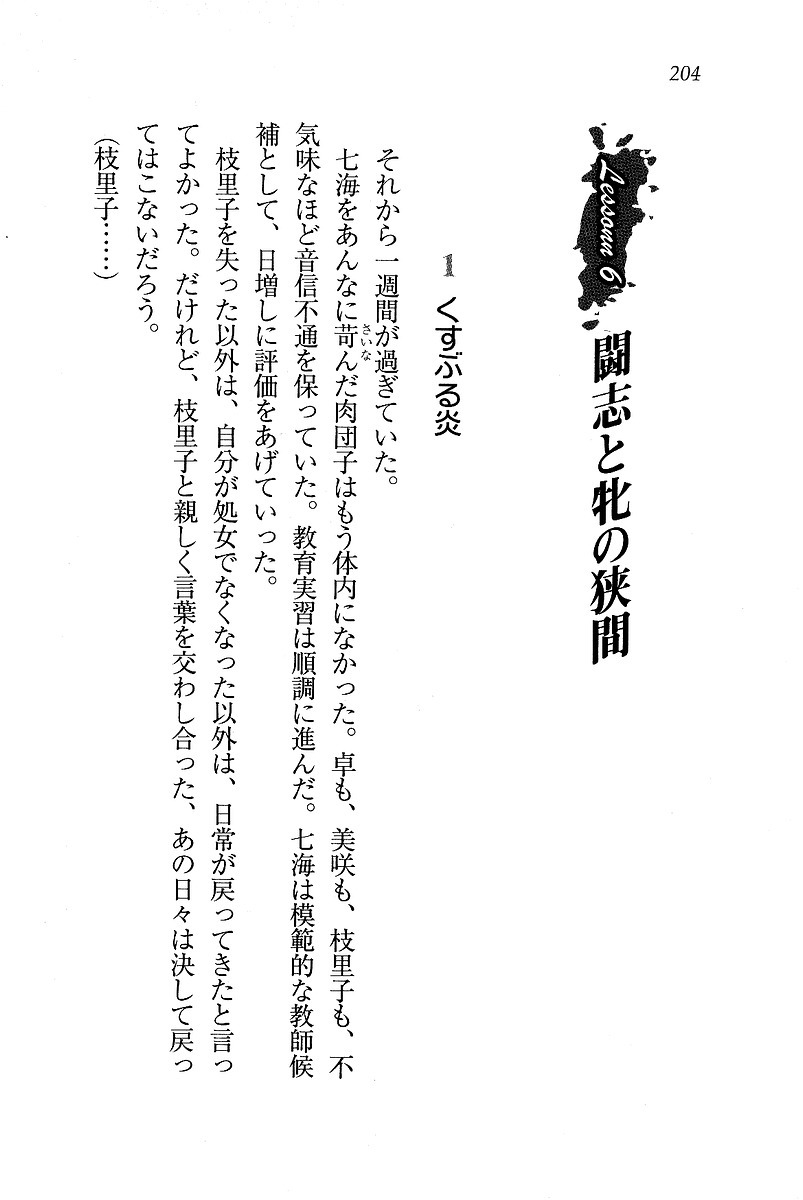 204
Lessonn 6
闘志と牝の狭間
1 くすぶる炎
それから一週間が過ぎていた。
七海をあんなに苛んだ肉団子はもう体内になかった。卓も、美咲も、枝里子も、不
さいな
気味なほど音信不通を保っていた。教育実習は順調に進んだ。七海は模範的な教師候
補として、日増しに評価をあげていった。
枝里子を失った以外は、自分が処女でなくなった以外は、日常が戻ってきたと言っ
てよかった。だけれど、枝里子と親しく言葉を交わし合った、あの日々は決して戻っ
てはこないだろう。
(枝里子……)